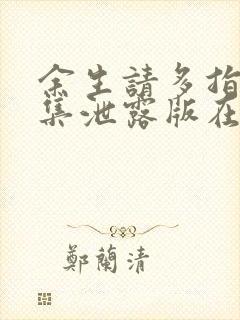 余生請多指
集泄露版在
鄭蘭清